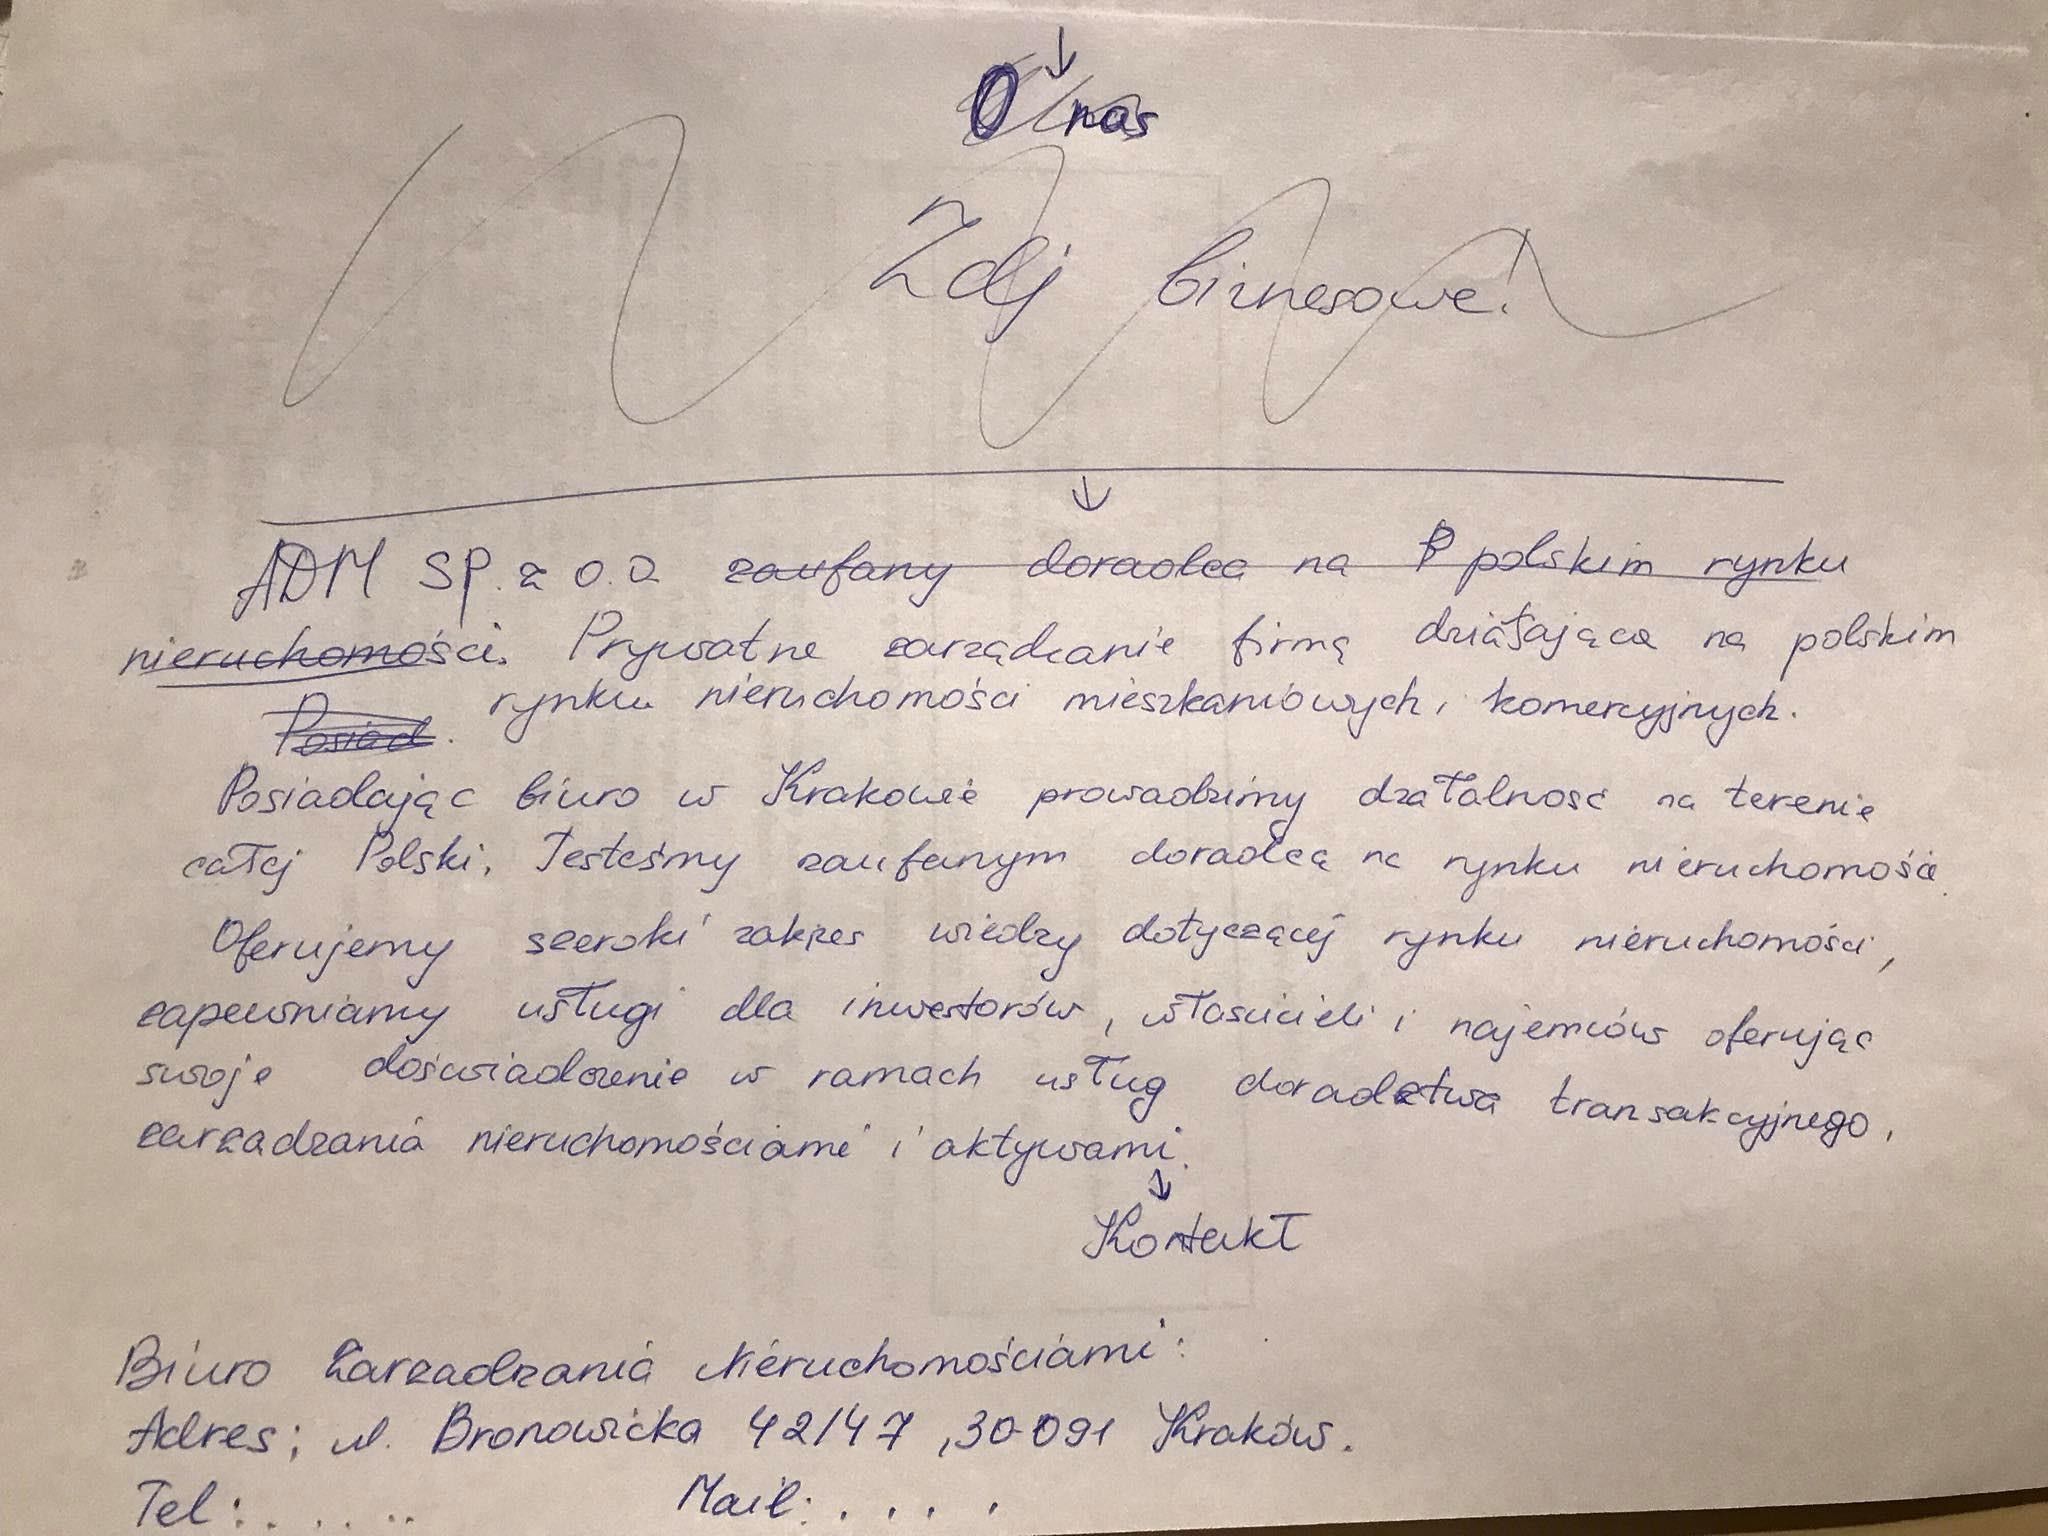 O nas
Zdj biznesowe!
ADM SP. z o.o zaufany doradca na P polskim rynku
nieruchomości. Prywatne zarządzanie firmą działająca na polskim
Posiad. rynku nieruchomości mieszkaniowych, komercyjnych.
Posiadając biuro w Krakowie prowadzimy działalność na terenie
całej Polski. Jesteśmy zaufanym doradcą na rynku nieruchomości.
Oferujemy szeroki zakres wiedzy dotyczącej rynku nieruchomości,
zapewniamy usługi dla inwestorów, właścicieli i najemców oferując
swoje doświadczenie w ramach usług doradctwa transakcyjnego,
zarządzania nieruchomościami i aktywami.
Kontakt
Biuro Zarzadzania Nieruchomościami:
Adres: ul. Bronowicka 42/47, 30-091 Kraków.
Tel: ..... Mail: ....